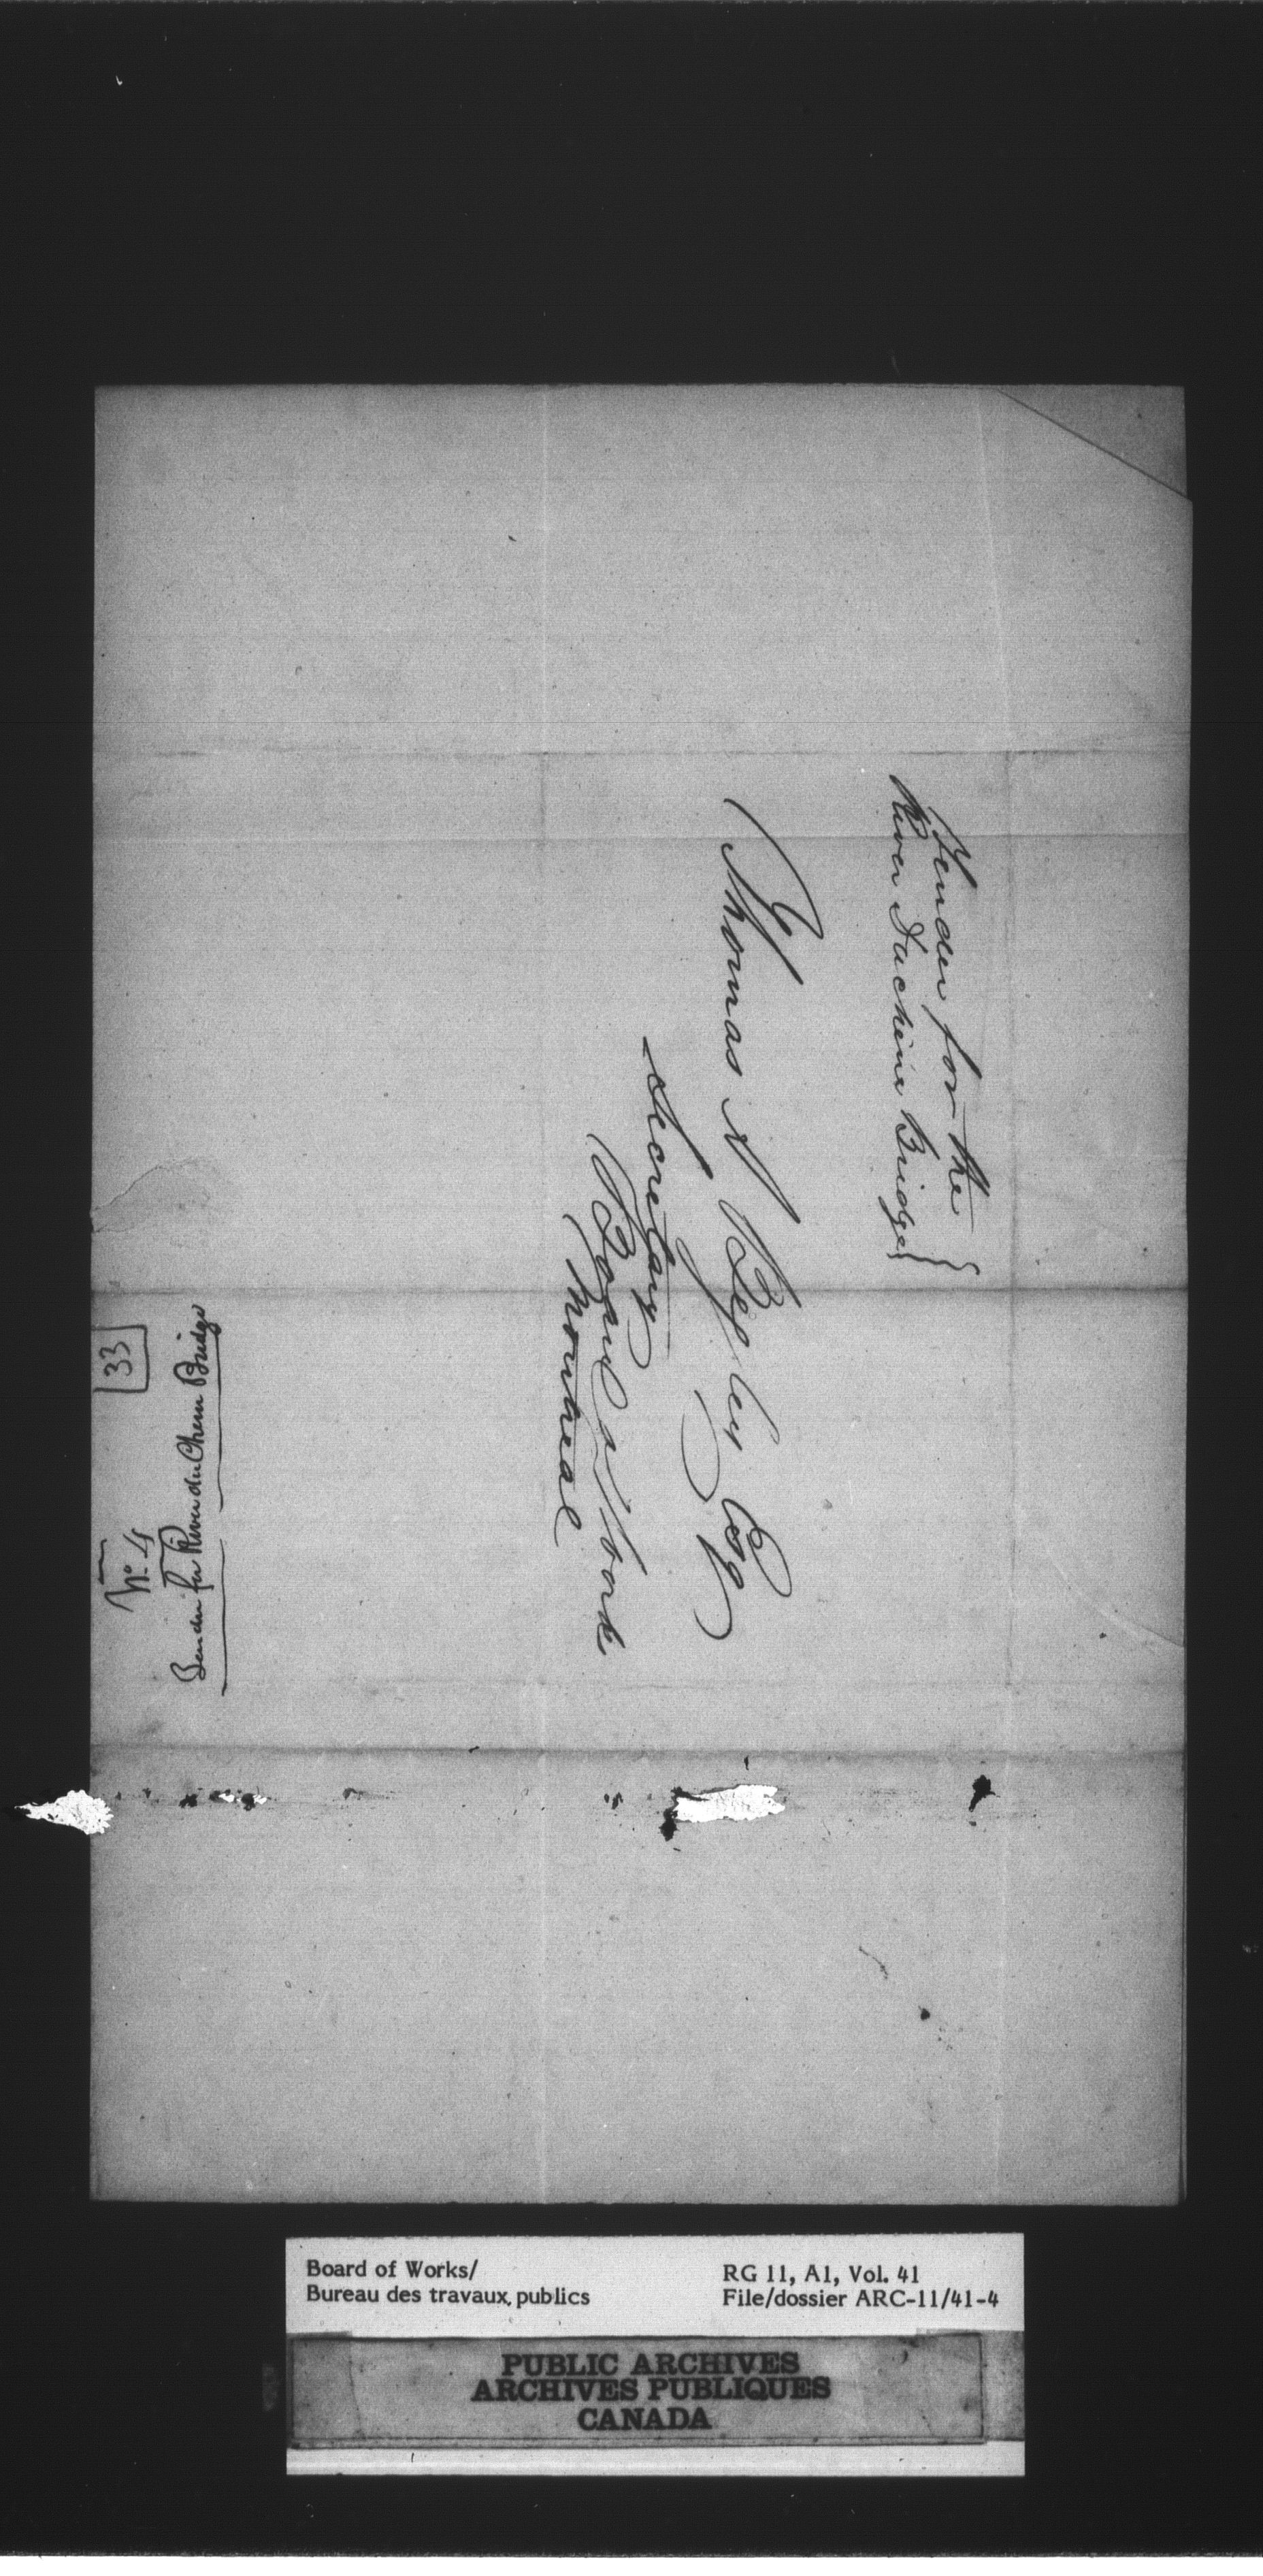 Tender for the
River Duchine Bridge
Thomas A Begley Esq
Secretary
Board of Work
Montreal
33
No. 4
Tender for River du Chene Bridge
Board of Works/
Bureau des travaux publics
RG 11, A1, Vol. 41
File/dossier ARC-11/41-4
PUBLIC ARCHIVES
ARCHIVES PUBLIQUES
CANADA